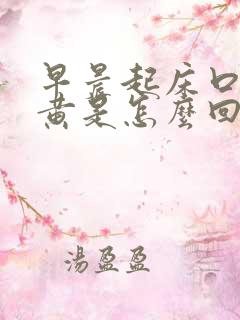 早晨起床口
黄是怎麼回
湯盈盈